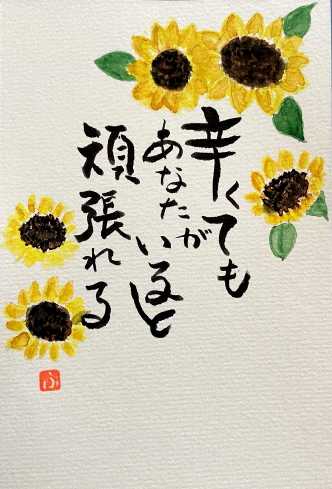 辛くても
あなたが
いると
頑張れる
ふ